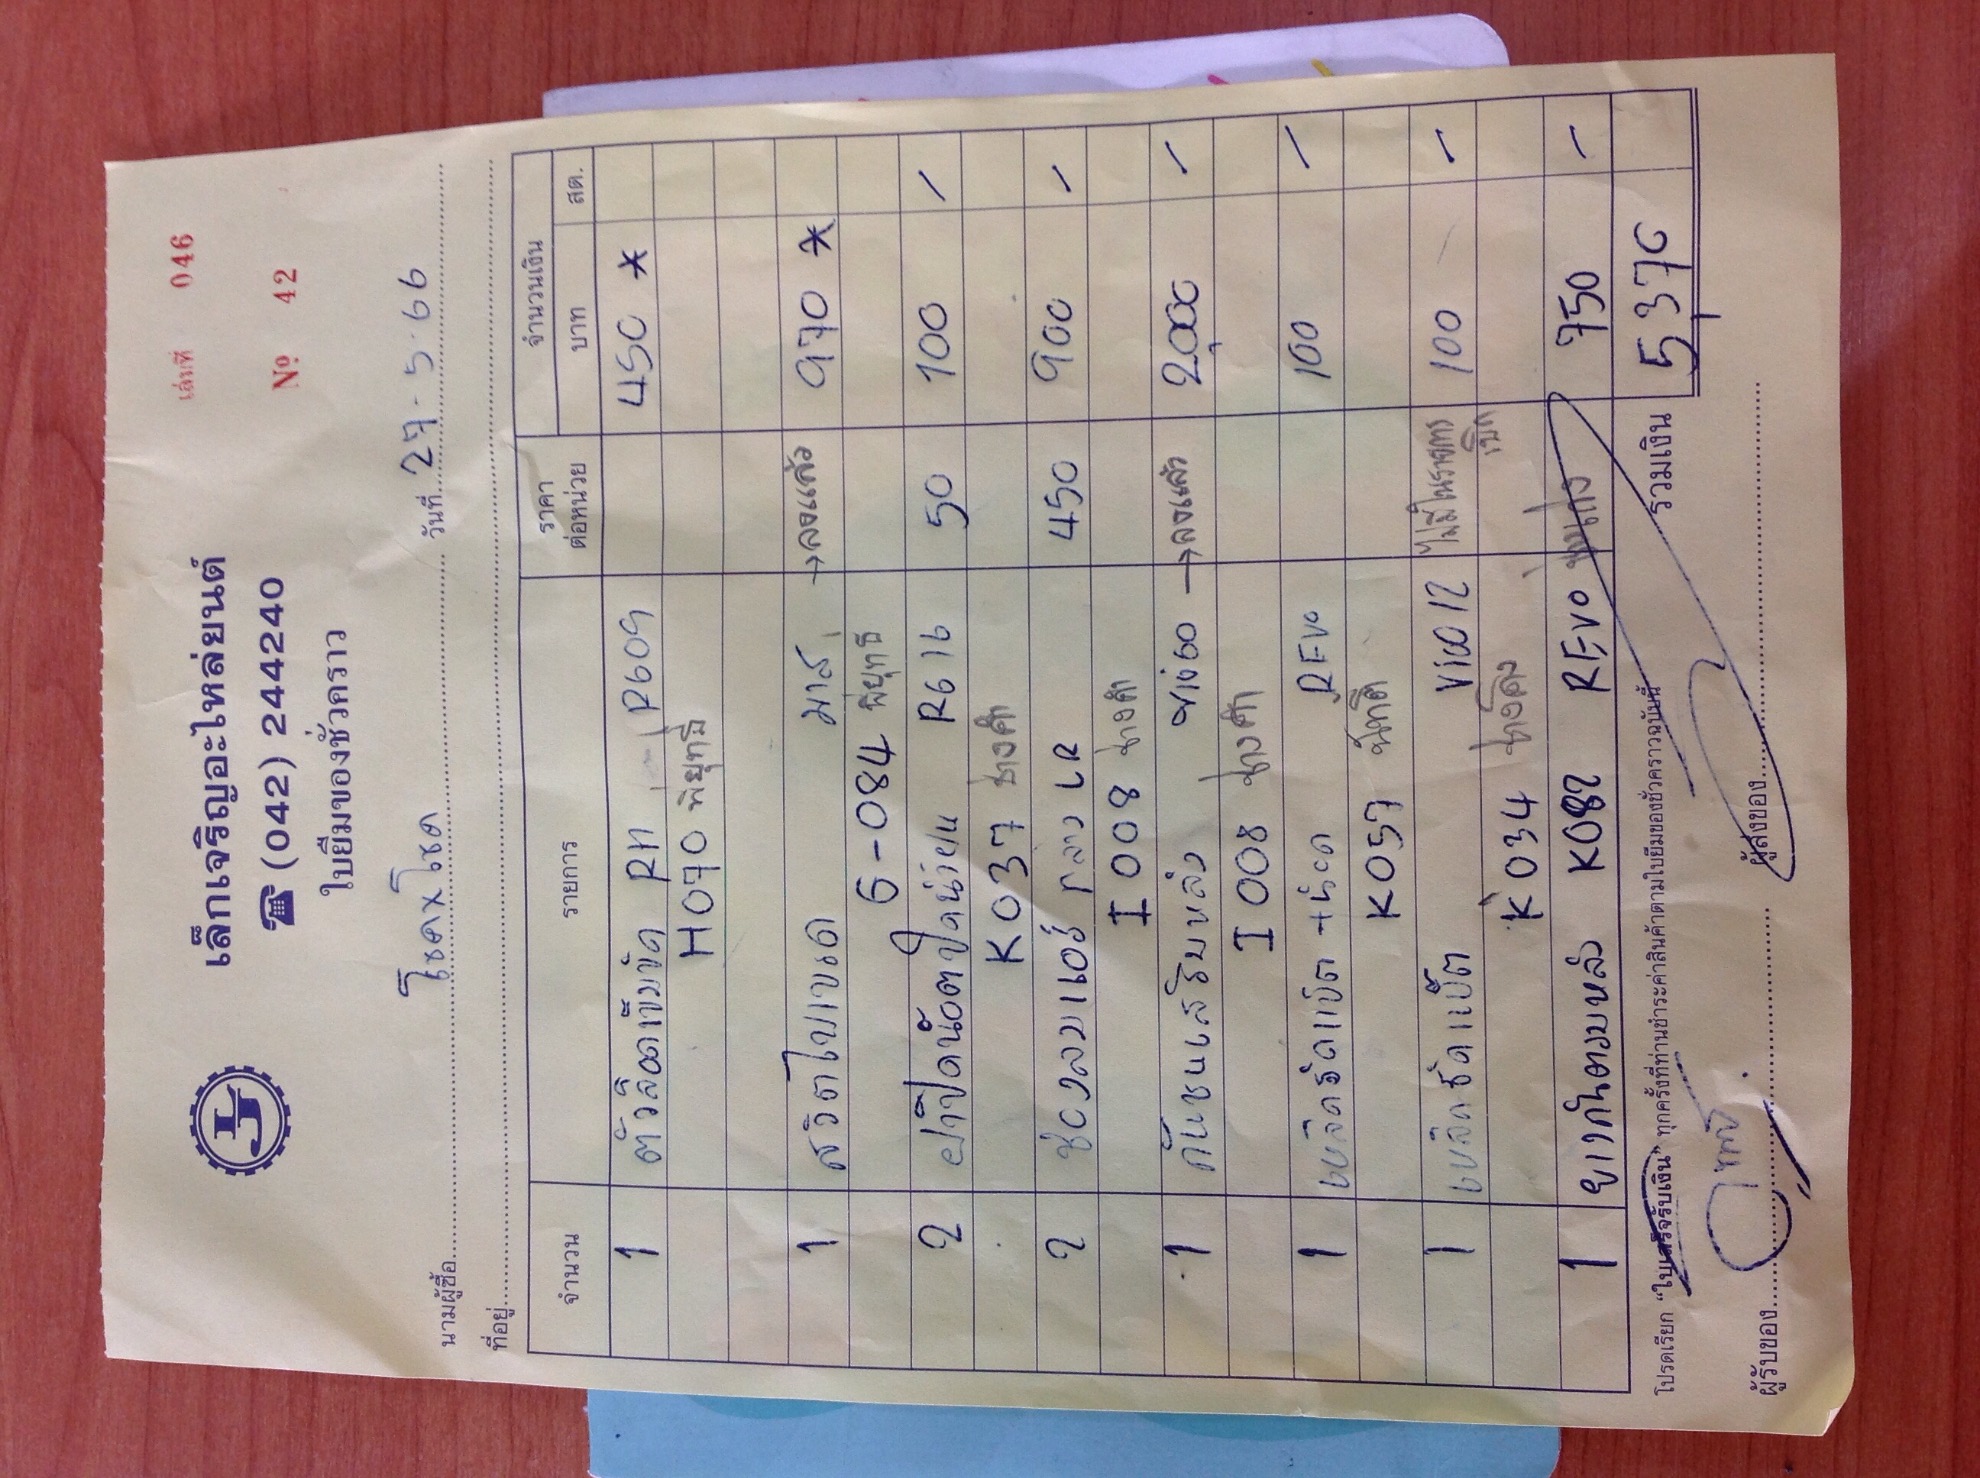 เล่มที่ 046
เล็กเจริญอะไหล่ยนต์
☎ (042) 244240
Nº 42
ใบยืมของชั่วคราว
นามผู้ซื้อ โชคxโชค วันที่ 27-5-66
ที่อยู่
จำนวน รายการ ราคาต่อหน่วย จำนวนเงิน
บาท สต.
1 ตัวล็อคเข็มขัด RH R609 450 *
H070 พิยุทธิ์
1 สวิตไฟเบรค → ลงแล้ว 970 *
6-084 พิยุทธิ์
2 ฝาปิดน๊อต R616 50 100 -
K037 ช่างดำ
2 LR 450 900 -
I008 ช่างดำ
1 กันชนเสริมหลัง vigo → ลงแล้ว 2,000 -
I008 ช่างดำ
1 REVO 100 -
K057
1 Vigo 12 ไม่มีในรายการเบิก 100 -
K034
1 ยางกันหลัง K082 REVO 750 -
รวมเงิน 5,370
โปรดเรียก "ใบเสร็จรับเงิน" ทุกครั้งที่ท่านชำระค่าสินค้าตามใบยืมของชั่วคราวฉบับนี้
ผู้รับของ ผู้ส่งของ